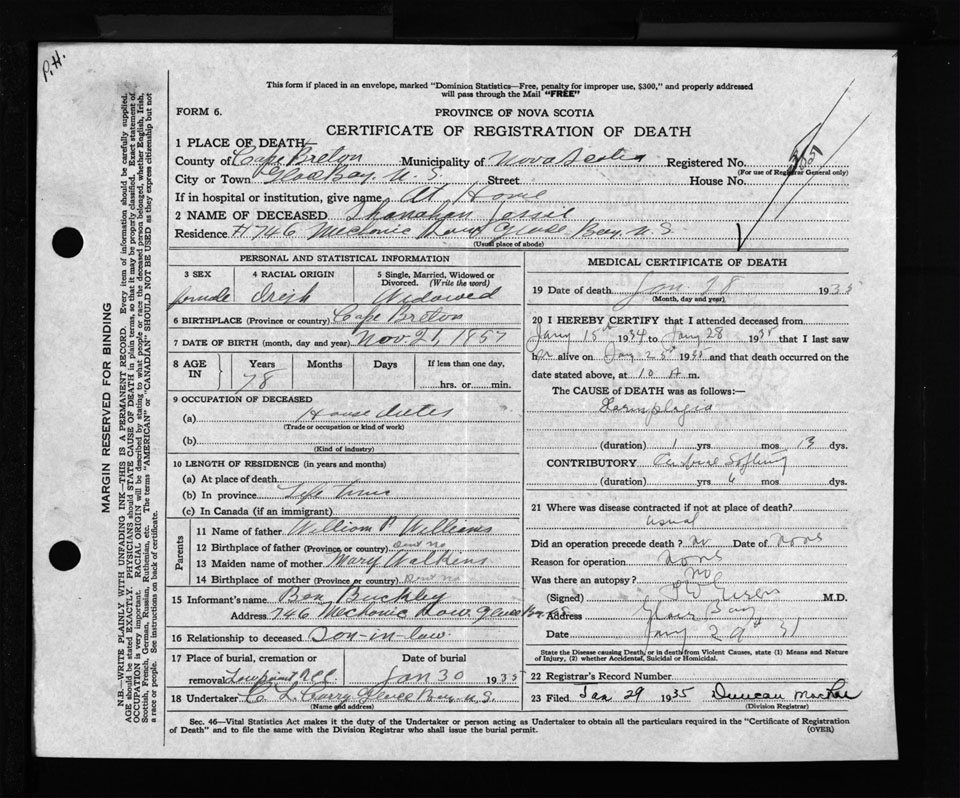 P.H.
This form if placed in an envelope, marked "Dominion Statistics—Free, penalty for improper use, $300," and properly addressed
will pass through the Mail "FREE"
FORM 6.
PROVINCE OF NOVA SCOTIA
CERTIFICATE OF REGISTRATION OF DEATH
1 PLACE OF DEATH—
County of Cape Breton Municipality of Nova Scotia Registered No.
(For use of Registrar General only)
City or Town Glace Bay, N.S. Street House No.
If in hospital or institution, give name At Home
2 NAME OF DECEASED Shanahan Jessie
Residence # 746 Mechanic Row Glace Bay, N.S.
(Usual place of abode)
PERSONAL AND STATISTICAL INFORMATION
3 SEX female
4 RACIAL ORIGIN Irish
5 Single, Married, Widowed or Divorced. (Write the word) Widowed
6 BIRTHPLACE (Province or country) Cape Breton
7 DATE OF BIRTH (month, day and year) Nov. 21, 1857
8 AGE IN Years Months Days If less than one day,
78 hrs. or min.
9 OCCUPATION OF DECEASED
(a) House duties
(Trade or occupation or kind of work)
(b)
(Kind of industry)
10 LENGTH OF RESIDENCE (in years and months)
(a) At place of death
(b) In province Life time
(c) In Canada (if an immigrant)
Parents
11 Name of father William P. Williams
12 Birthplace of father (Province or country) Dont no
13 Maiden name of mother Mary Watkins
14 Birthplace of mother (Province or country) Dont no
15 Informant's name Ben Buckley
Address 746 Mechanic Row Glace Bay N.S.
16 Relationship to deceased Son-in-law.
17 Place of burial, cremation or removal Low point RCC Date of burial Jan 30 1935
18 Undertaker C. L. Curry Glace Bay N.S.
(Name and address)
MEDICAL CERTIFICATE OF DEATH
19 Date of death Jan 28 1935
(Month, day and year)
20 I HEREBY CERTIFY that I attended deceased from
Jany 15th 1934 to Jany 28 1935 that I last saw
her alive on Jany 25th 1935 and that death occurred on the
date stated above, at 10 A m.
The CAUSE OF DEATH was as follows:—
(duration) 1 yrs. mos. 13 dys.
CONTRIBUTORY
(duration) yrs. mos. dys.
21 Where was disease contracted if not at place of death?
usual
Did an operation precede death? no Date of None
Reason for operation None
Was there an autopsy? No
(Signed) M.D.
Address Glace Bay
Date Jany 29th 31
State the Disease causing Death, or in death from Violent Causes, state (1) Means and Nature
of Injury, (2) whether Accidental, Suicidal or Homicidal.
22 Registrar's Record Number
23 Filed Jan 29 1935 Duncan MacRae
(Division Registrar)
Sec. 46—Vital Statistics Act makes it the duty of the Undertaker or person acting as Undertaker to obtain all the particulars required in the "Certificate of Registration
of Death" and to file the same with the Division Registrar who shall issue the burial permit.
(OVER)
MARGIN RESERVED FOR BINDING
N.B.—WRITE PLAINLY WITH UNFADING INK—THIS IS A PERMANENT RECORD. Every item of information should be carefully supplied.
AGE should be stated EXACTLY. PHYSICIANS should STATE CAUSE OF DEATH in plain terms, so that it may be properly classified. Exact statement of
OCCUPATION is very important. RACIAL ORIGIN will be described by stating to what people or race the deceased person belonged, whether English, Irish,
Scottish, French, German, Russian, Ruthenian, etc. The terms "AMERICAN" or "CANADIAN" SHOULD NOT BE USED as they express citizenship but not
a race or people. See instructions on back of certificate.